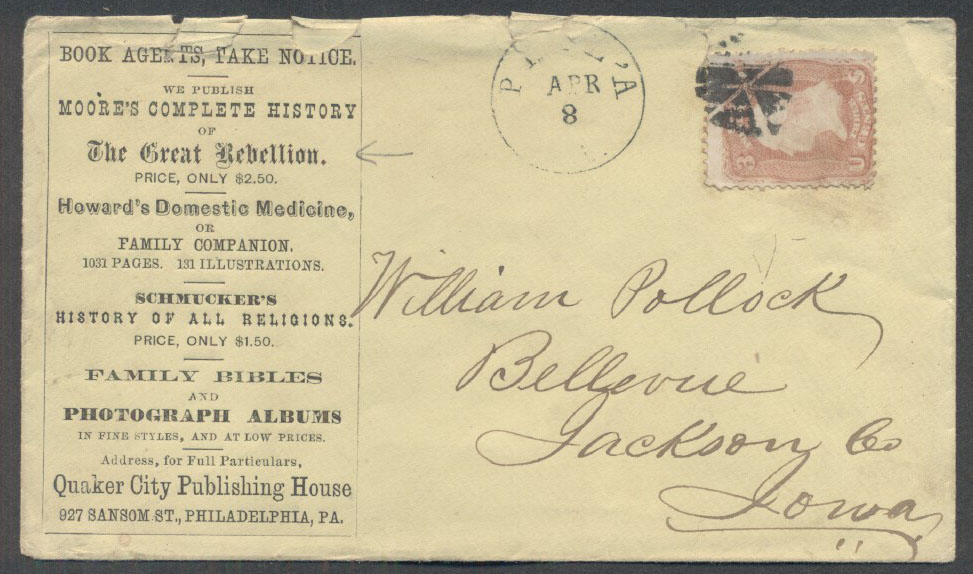 BOOK AGENTS, TAKE NOTICE.
WE PUBLISH
MOORE'S COMPLETE HISTORY
OF
The Great Rebellion.
PRICE, ONLY $2.50.
Howard's Domestic Medicine,
OR
FAMILY COMPANION.
1031 PAGES. 131 ILLUSTRATIONS.
SCHMUCKER'S
HISTORY OF ALL RELIGIONS.
PRICE, ONLY $1.50.
FAMILY BIBLES
AND
PHOTOGRAPH ALBUMS
IN FINE STYLES, AND AT LOW PRICES.
Address, for Full Particulars,
Quaker City Publishing House
927 SANSOM ST., PHILADELPHIA, PA.
APR
8
3
U
S
William Pollock
Bellevue
Jackson Co
Iowa